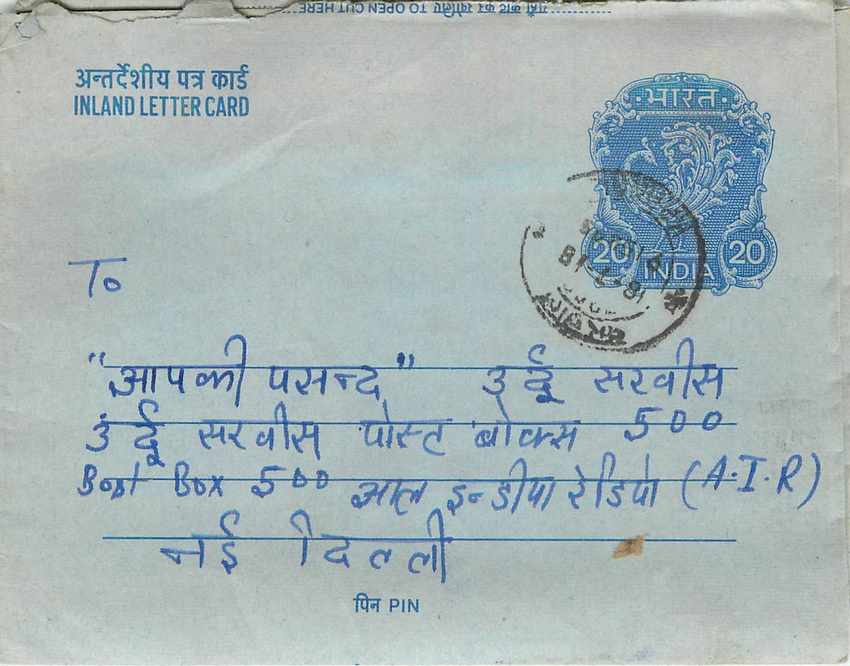 यहाँ काट कर खोलिए TO OPEN CUT HERE
अन्तर्देशीय पत्र कार्ड
INLAND LETTER CARD
भारत
20 INDIA 20
To
"आपकी पसन्द" उर्दू सरवीस
उर्दू सरवीस पोस्ट बोक्स 500
Bost Box 500 आल इन्डीया रेडियो (A.I.R)
नई दिल्ली
पिन PIN